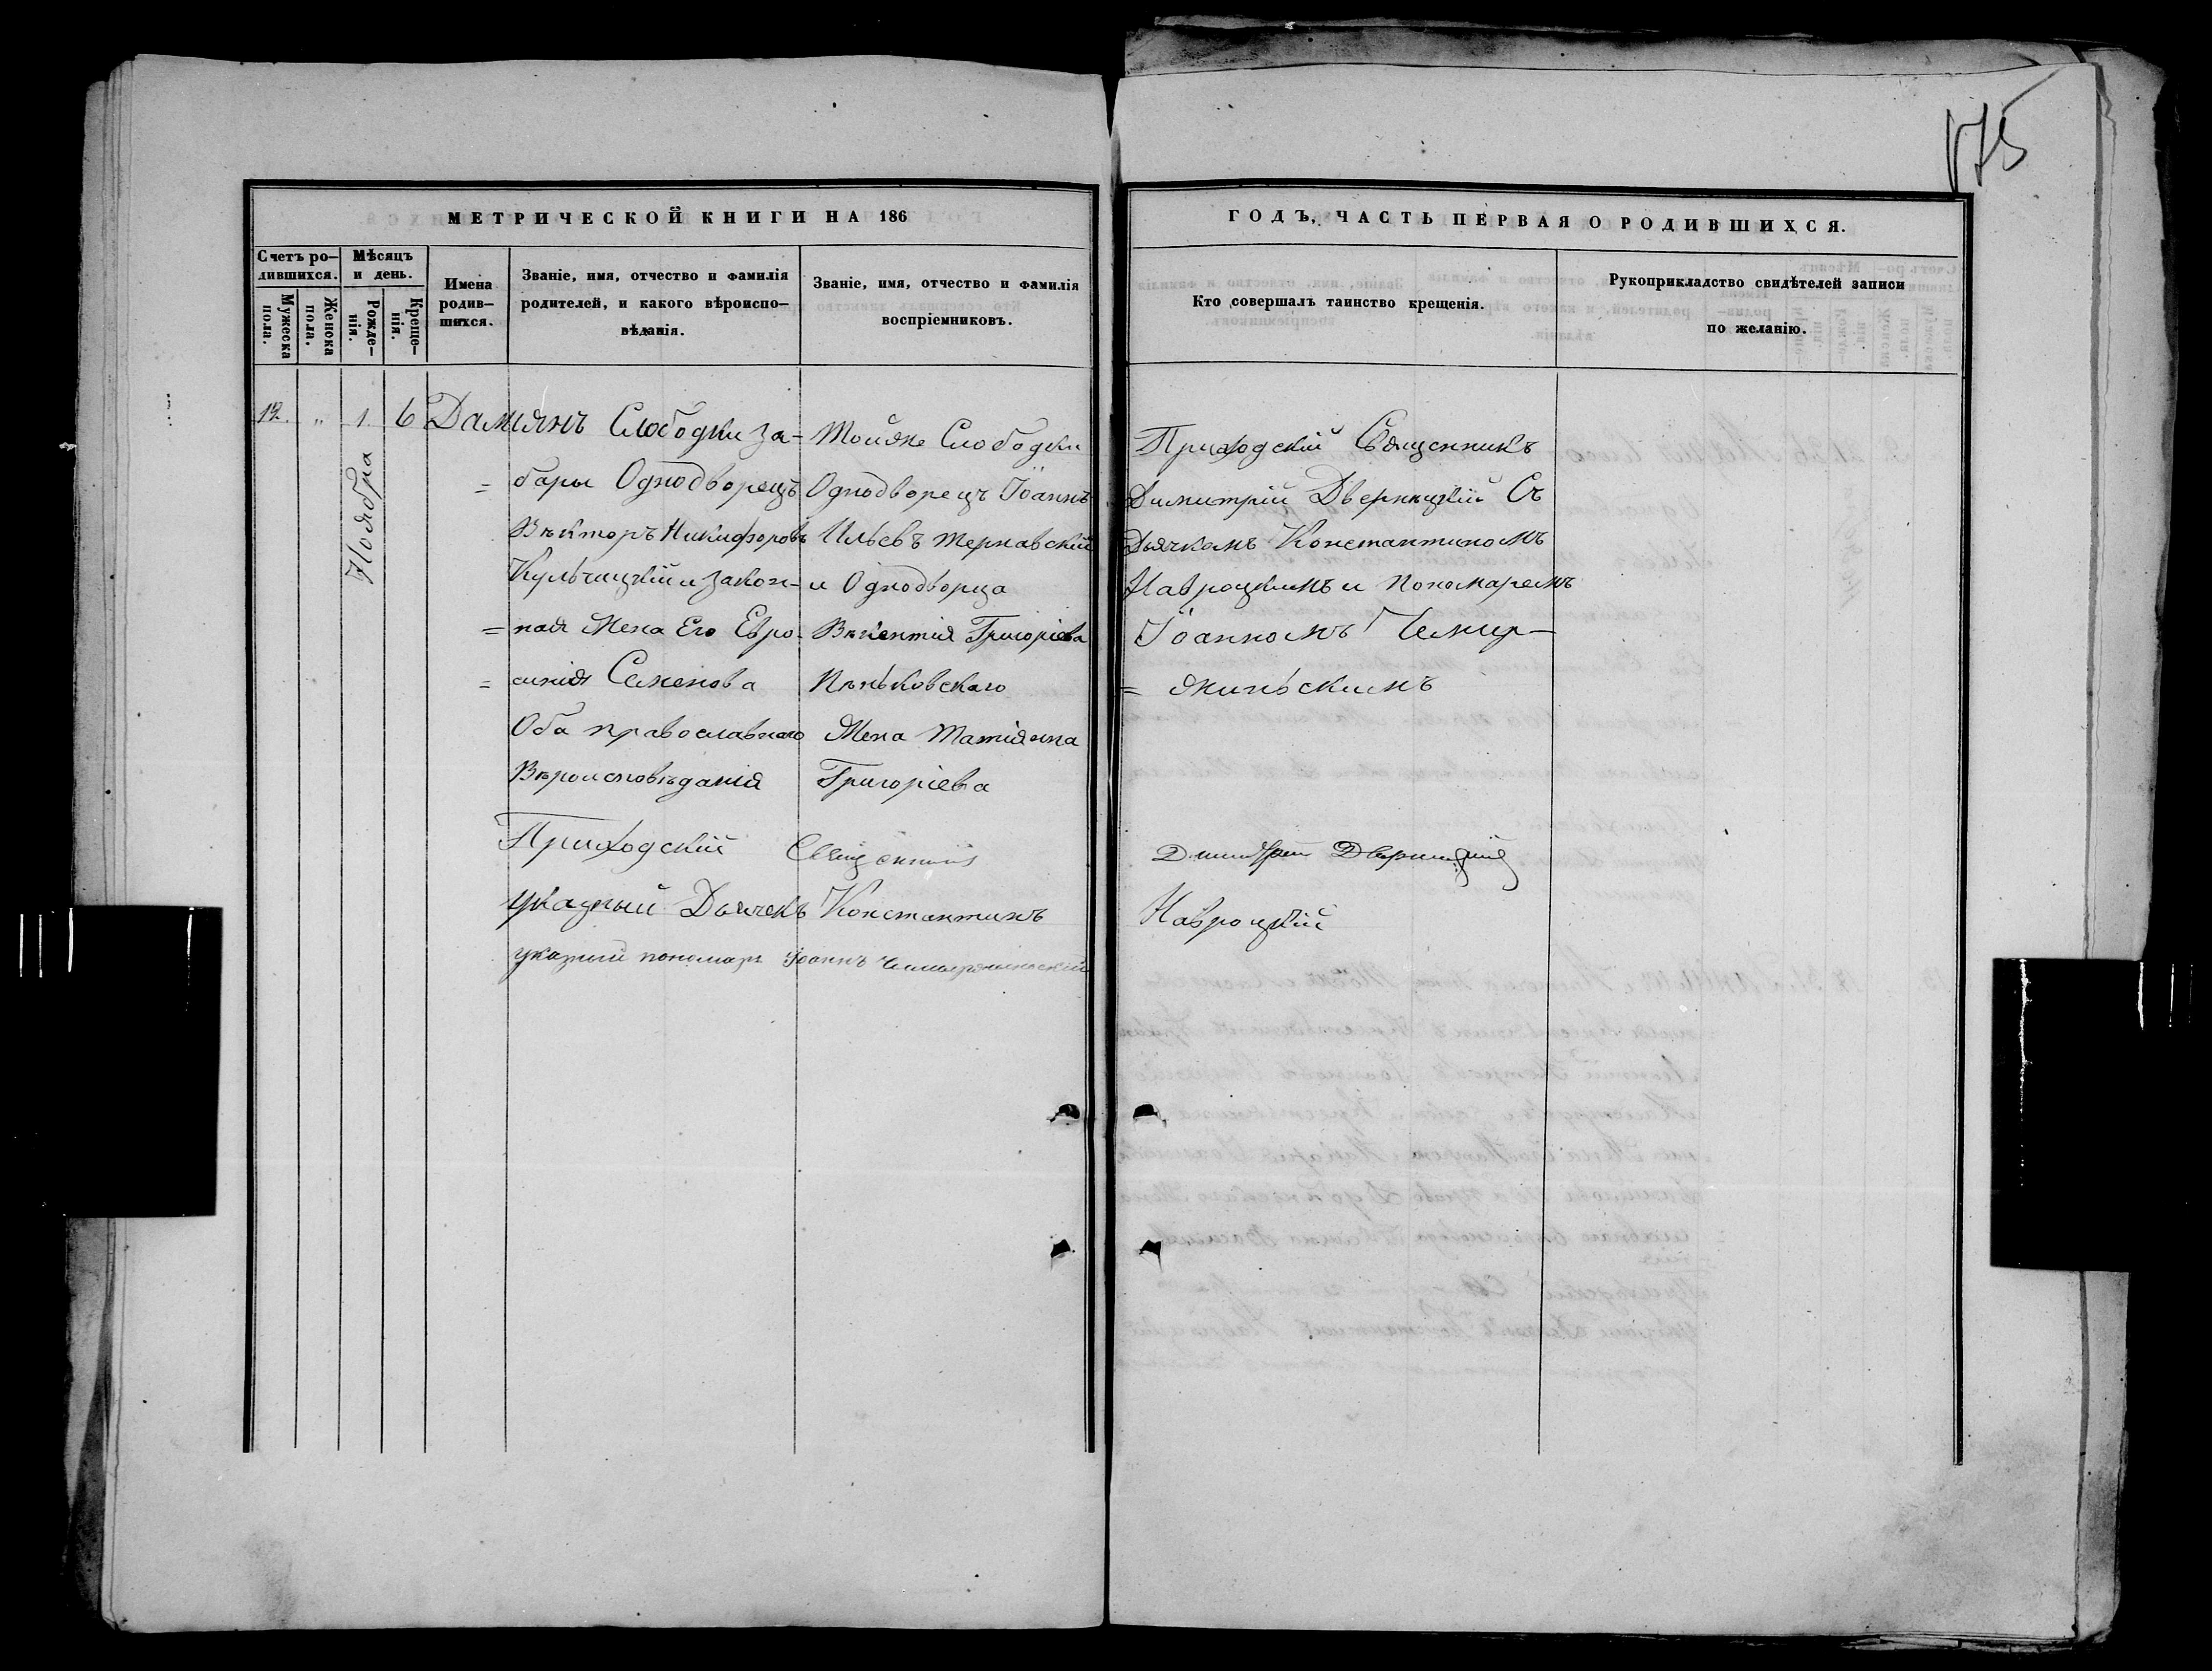 175
МЕТРИЧЕСКОЙ КНИГИ НА 186
ГОДЪ, ЧАСТЬ ПЕРВАЯ О РОДИВШИХСЯ.
Счетъ ро-
дившихся.
Мужеска
пола.
Женска
пола.
Мѣсяцъ
и день.
Рожде-
нія.
Креще-
нія.
Имена
родив-
шихся.
Званіе, имя, отчество и фамилія
родителей, и какого вѣроиспо-
вѣданія.
Званіе, имя, отчество и фамилія
воспріемниковъ.
Кто совершалъ таинство крещенія.
Рукоприкладство свидѣтелей записи
по желанію.
12. " 1. 6 Дамианъ
Ноября
Слободки За-
= бары Однодворецъ
Вѣкторъ Никифоровъ
Кульчицкій и закон-
= ная Жена Его Евро-
= синія Семенова
Оба православнаго
Вѣроисповѣданія
Тойже Слободки
Однодворецъ Іоаннъ
Ильевъ Тернавскій
и Однодворца
Викентія Григоріева
Пѣньковскаго
Жена Татіянна
Григоріева
Приходскій Священникъ
Димитрій Дверницкій Съ
Дьячкомъ Константиномъ
Навроцкимъ и пономаремъ
Іоанномъ Чемер-
= жиньскимъ
Приходскій Священникъ Димитрій Дверницкій
указный Дьячекъ Константинъ Навроцкій
указный пономарь Іоаннъ